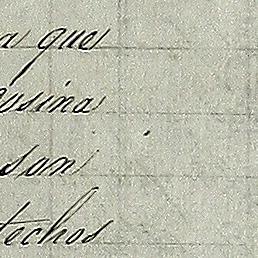 a que
osina
son
techos